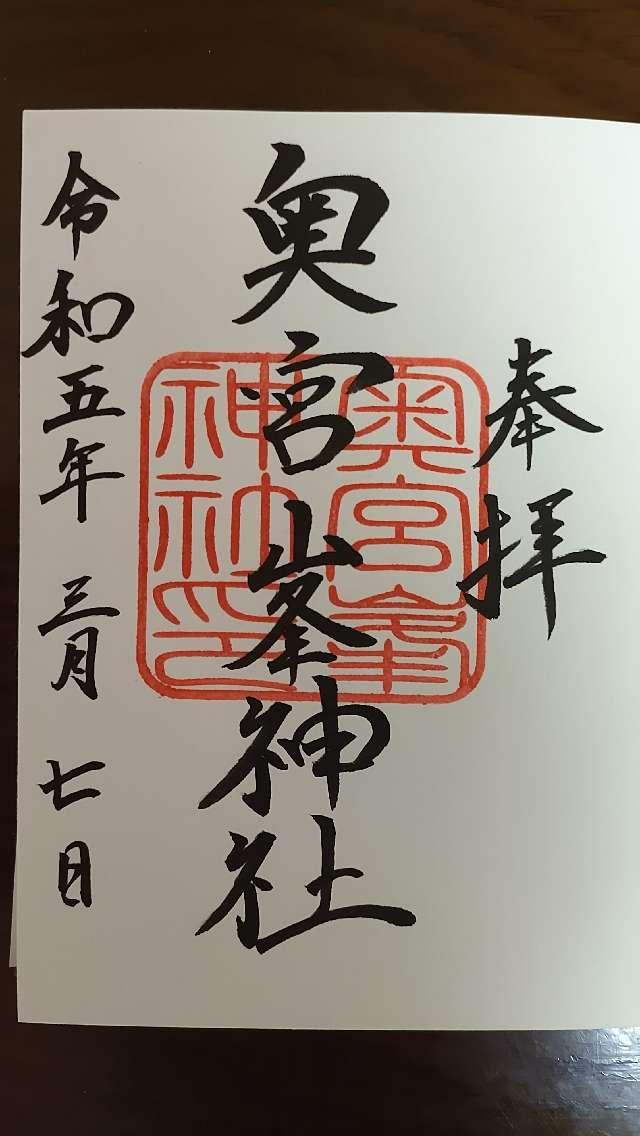 奉拝
奥宮峯神社
奥宮峯
神社印
令和五年 三月 七日